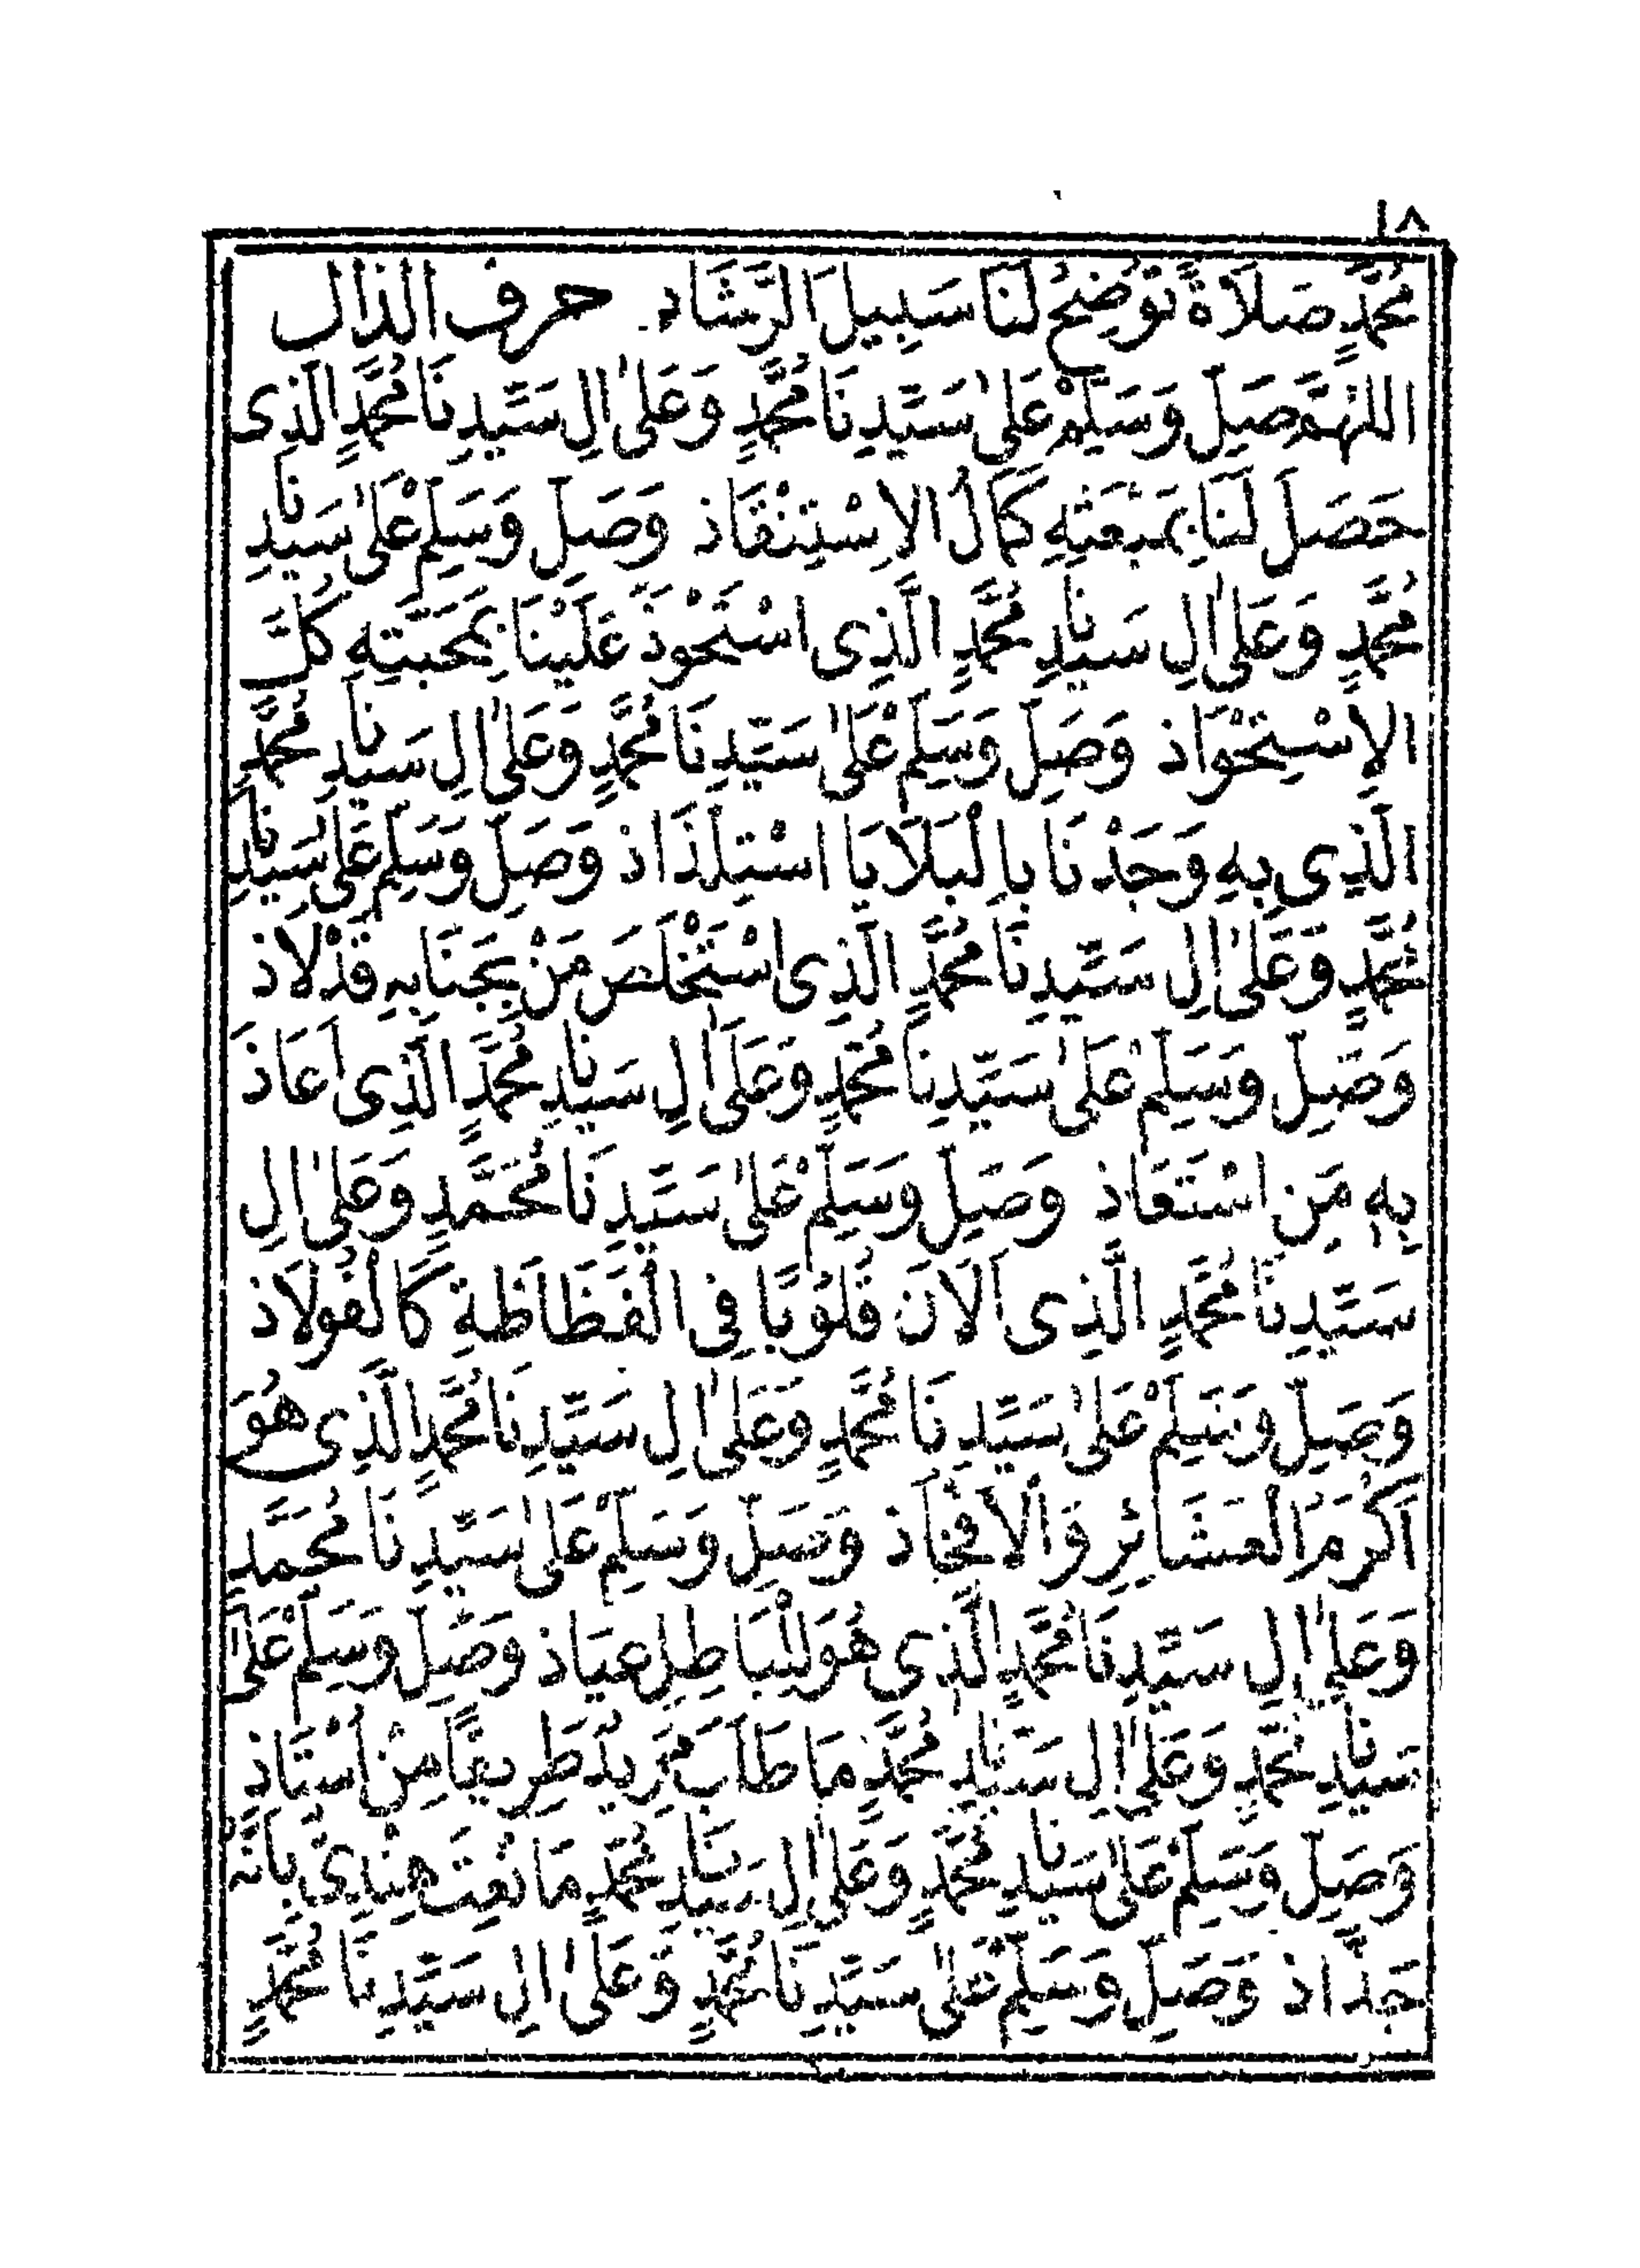 ١٨
مُحَمَّدٍ صَلَاةً تُوَضِّحُ لَنَا سَبِيلَ الرَّشَادِ حرف الذال
اللهُمَّ صَلِّ وَسَلِّمْ عَلَىٰ سَيِّدِنَا مُحَمَّدٍ وَعَلَىٰ اٰلِ سَيِّدِنَا مُحَمَّدٍ الَّذِى
حَصَلَ لَنَا بِمَبْعَثِهِ كَمَالُ الاِسْتِنْقَاذ وَصَلِّ وَسَلِّمْ عَلَىٰ سَيِّدِنَا
مُحَمَّدٍ وَعَلَىٰ اٰلِ سَيِّدِنَا مُحَمَّدٍ الَّذِى اسْتَحْوَذَ عَلَيْنَا بِمَحَبَّتِهِ كُلَّ
الاِسْتِحْوَاذ وَصَلِّ وَسَلِّمْ عَلَىٰ سَيِّدِنَا مُحَمَّدٍ وَعَلَىٰ اٰلِ سَيِّدِنَا مُحَمَّدٍ
الَّذِى بِهِ وَجَدْنَا بِالْبَلَايَا اسْتِلْذَاذ وَصَلِّ وَسَلِّمْ عَلَىٰ سَيِّدِنَا
مُحَمَّدٍ وَعَلَىٰ اٰلِ سَيِّدِنَا مُحَمَّدٍ الَّذِى اسْتَخْلَصَ مَنْ بِجَنَابِهِ قَدْ لَاذ
وَصَلِّ وَسَلِّمْ عَلَىٰ سَيِّدِنَا مُحَمَّدٍ وَعَلَىٰ اٰلِ سَيِّدِنَا مُحَمَّدٍ الَّذِى اَعَاذَ
بِهِ مَنِ اسْتَعَاذ وَصَلِّ وَسَلِّمْ عَلَىٰ سَيِّدِنَا مُحَمَّدٍ وَعَلَىٰ اٰلِ
سَيِّدِنَا مُحَمَّدٍ الَّذِى اَلَانَ قُلُوْبًا فِى الْفَظَاظَةِ كَالْفُولَاذ
وَصَلِّ وَسَلِّمْ عَلَىٰ سَيِّدِنَا مُحَمَّدٍ وَعَلَىٰ اٰلِ سَيِّدِنَا مُحَمَّدٍ الَّذِى هُوَ
اَكْرَمُ الْعَشَائِرِ وَالْاَفْخَاذ وَصَلِّ وَسَلِّمْ عَلَىٰ سَيِّدِنَا مُحَمَّدٍ
وَعَلَىٰ اٰلِ سَيِّدِنَا مُحَمَّدٍ الَّذِى هُوَ لِلْبَاطِلِ عِيَاذ وَصَلِّ وَسَلِّمْ عَلَىٰ
سَيِّدِنَا مُحَمَّدٍ وَعَلَىٰ اٰلِ سَيِّدِنَا مُحَمَّدٍ مَا طَابَ مُرِيدٌ طَرِيقًا مِنْ اُسْتَاذ
وَصَلِّ وَسَلِّمْ عَلَىٰ سَيِّدِنَا مُحَمَّدٍ وَعَلَىٰ اٰلِ سَيِّدِنَا مُحَمَّدٍ مَا نُعِتَ هِنْدِىٌّ بِاَنَّهُ
جَذَّاذ وَصَلِّ وَسَلِّمْ عَلَىٰ سَيِّدِنَا مُحَمَّدٍ وَعَلَىٰ اٰلِ سَيِّدِنَا مُحَمَّدٍ